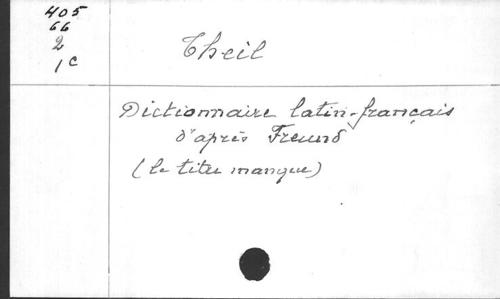 405
66
2
1c
Theil
Dictionnaire latin-français
d'après Freund
(le titre manque)